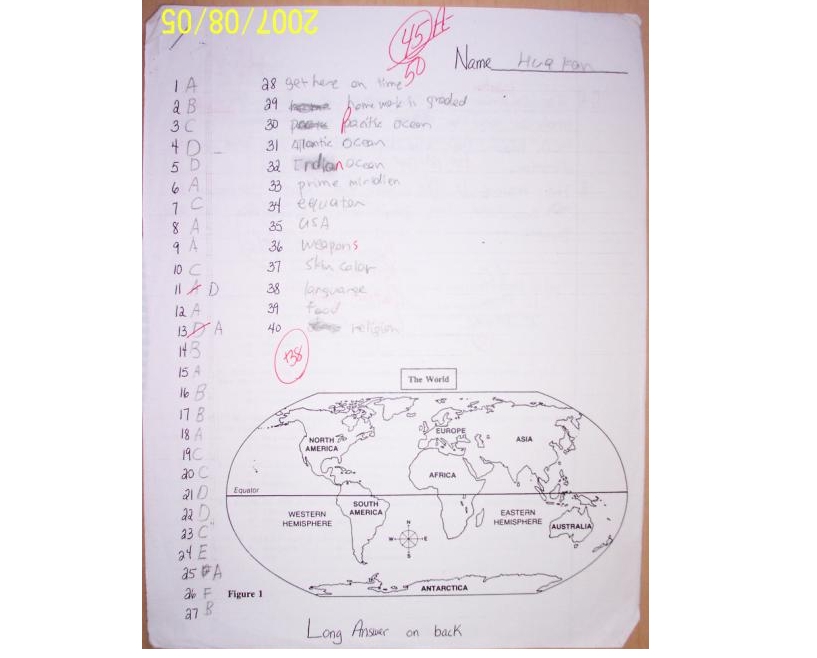 2007/08/05
45 A
50
Name Hua Fan
1 A
2 B
3 C
4 D
5 D
6 A
7 C
8 A
9 A
10 C
11 A D
12 A
13 D A
14 B
15 A
16 B
17 B
18 A
19 C
20 C
21 D
22 D
23 C
24 E
25 A
26 F
27 B
28 get here on time
29 homework is graded
30 Pacific ocean
31 Atlantic ocean
32 Indian ocean
33 prime miridien
34 equator
35 USA
36 weapons
37 Skin color
38 languarge
39 food
40 religion
+38
The World
NORTH
AMERICA
EUROPE
ASIA
AFRICA
Equator
SOUTH
AMERICA
WESTERN
HEMISPHERE
EASTERN
HEMISPHERE
AUSTRALIA
N
W E
S
ANTARCTICA
Figure 1
Long Answer on back